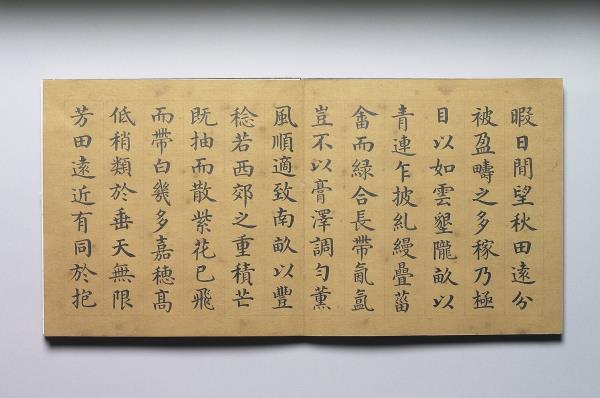 暇日閒望秋田遠分
被盈疇之多稼乃極
目以如雲墾隴畝以
青連乍披糺縵疊菑
畬而綠合長帶氤氳
豈不以膏澤調勻薰
風順適致南畝以豐
稔若西郊之重積芒
既抽而散紫花已飛
而帶白幾多嘉穗高
低稍類於垂天無限
芳田遠近有同於抱